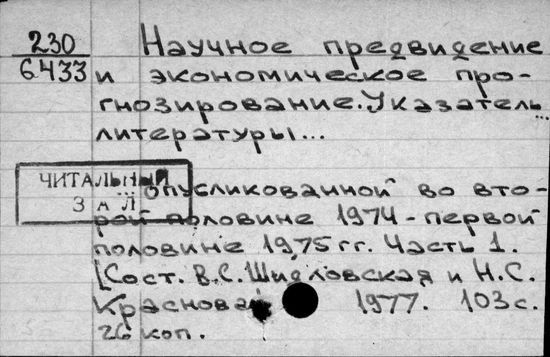 230
6433
Научное предвидение
и экономическое про-
гнозирование. Указатель
литературы...
ЧИТАЛЬНЫЙ
ЗАЛ
опубликованной во вто-
рой половине 1974 - первой
половине 1975 гг. Часть 1.
[Сост. В.С. Шидловская и Н.С.
Краснова 1977. 103 с.
26 коп.